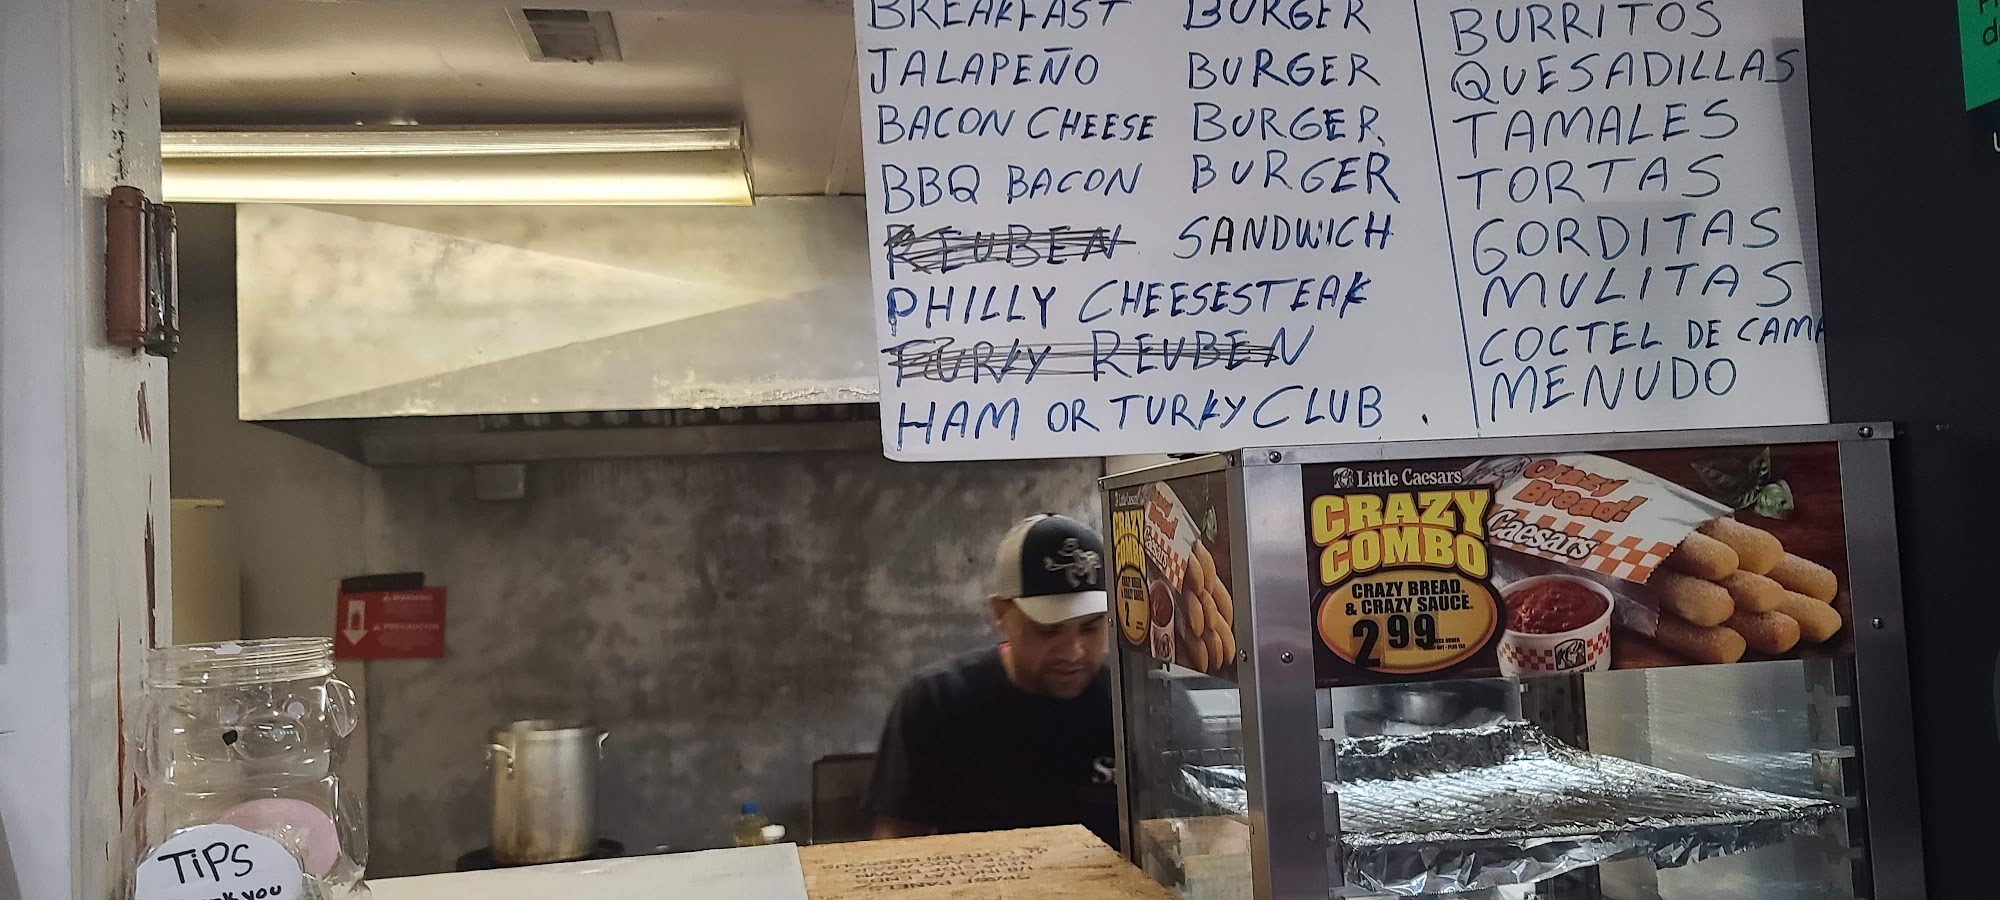 BREAKFAST BURGER
JALAPEÑO BURGER
BACON CHEESE BURGER
BBQ BACON BURGER
REUBEN SANDWICH
PHILLY CHEESESTEAK
TURKY REUBEN
HAM OR TURKY CLUB
BURRITOS
QUESADILLAS
TAMALES
TORTAS
GORDITAS
MULITAS
COCTEL DE CAMA
MENUDO
Little Caesars
CRAZY
COMBO
CRAZY BREAD
& CRAZY SAUCE
2 99
Crazy
Bread!
Caesars
CRAZY
COMBO
2
WARNING
PRECAUCION
TIPS
YOU